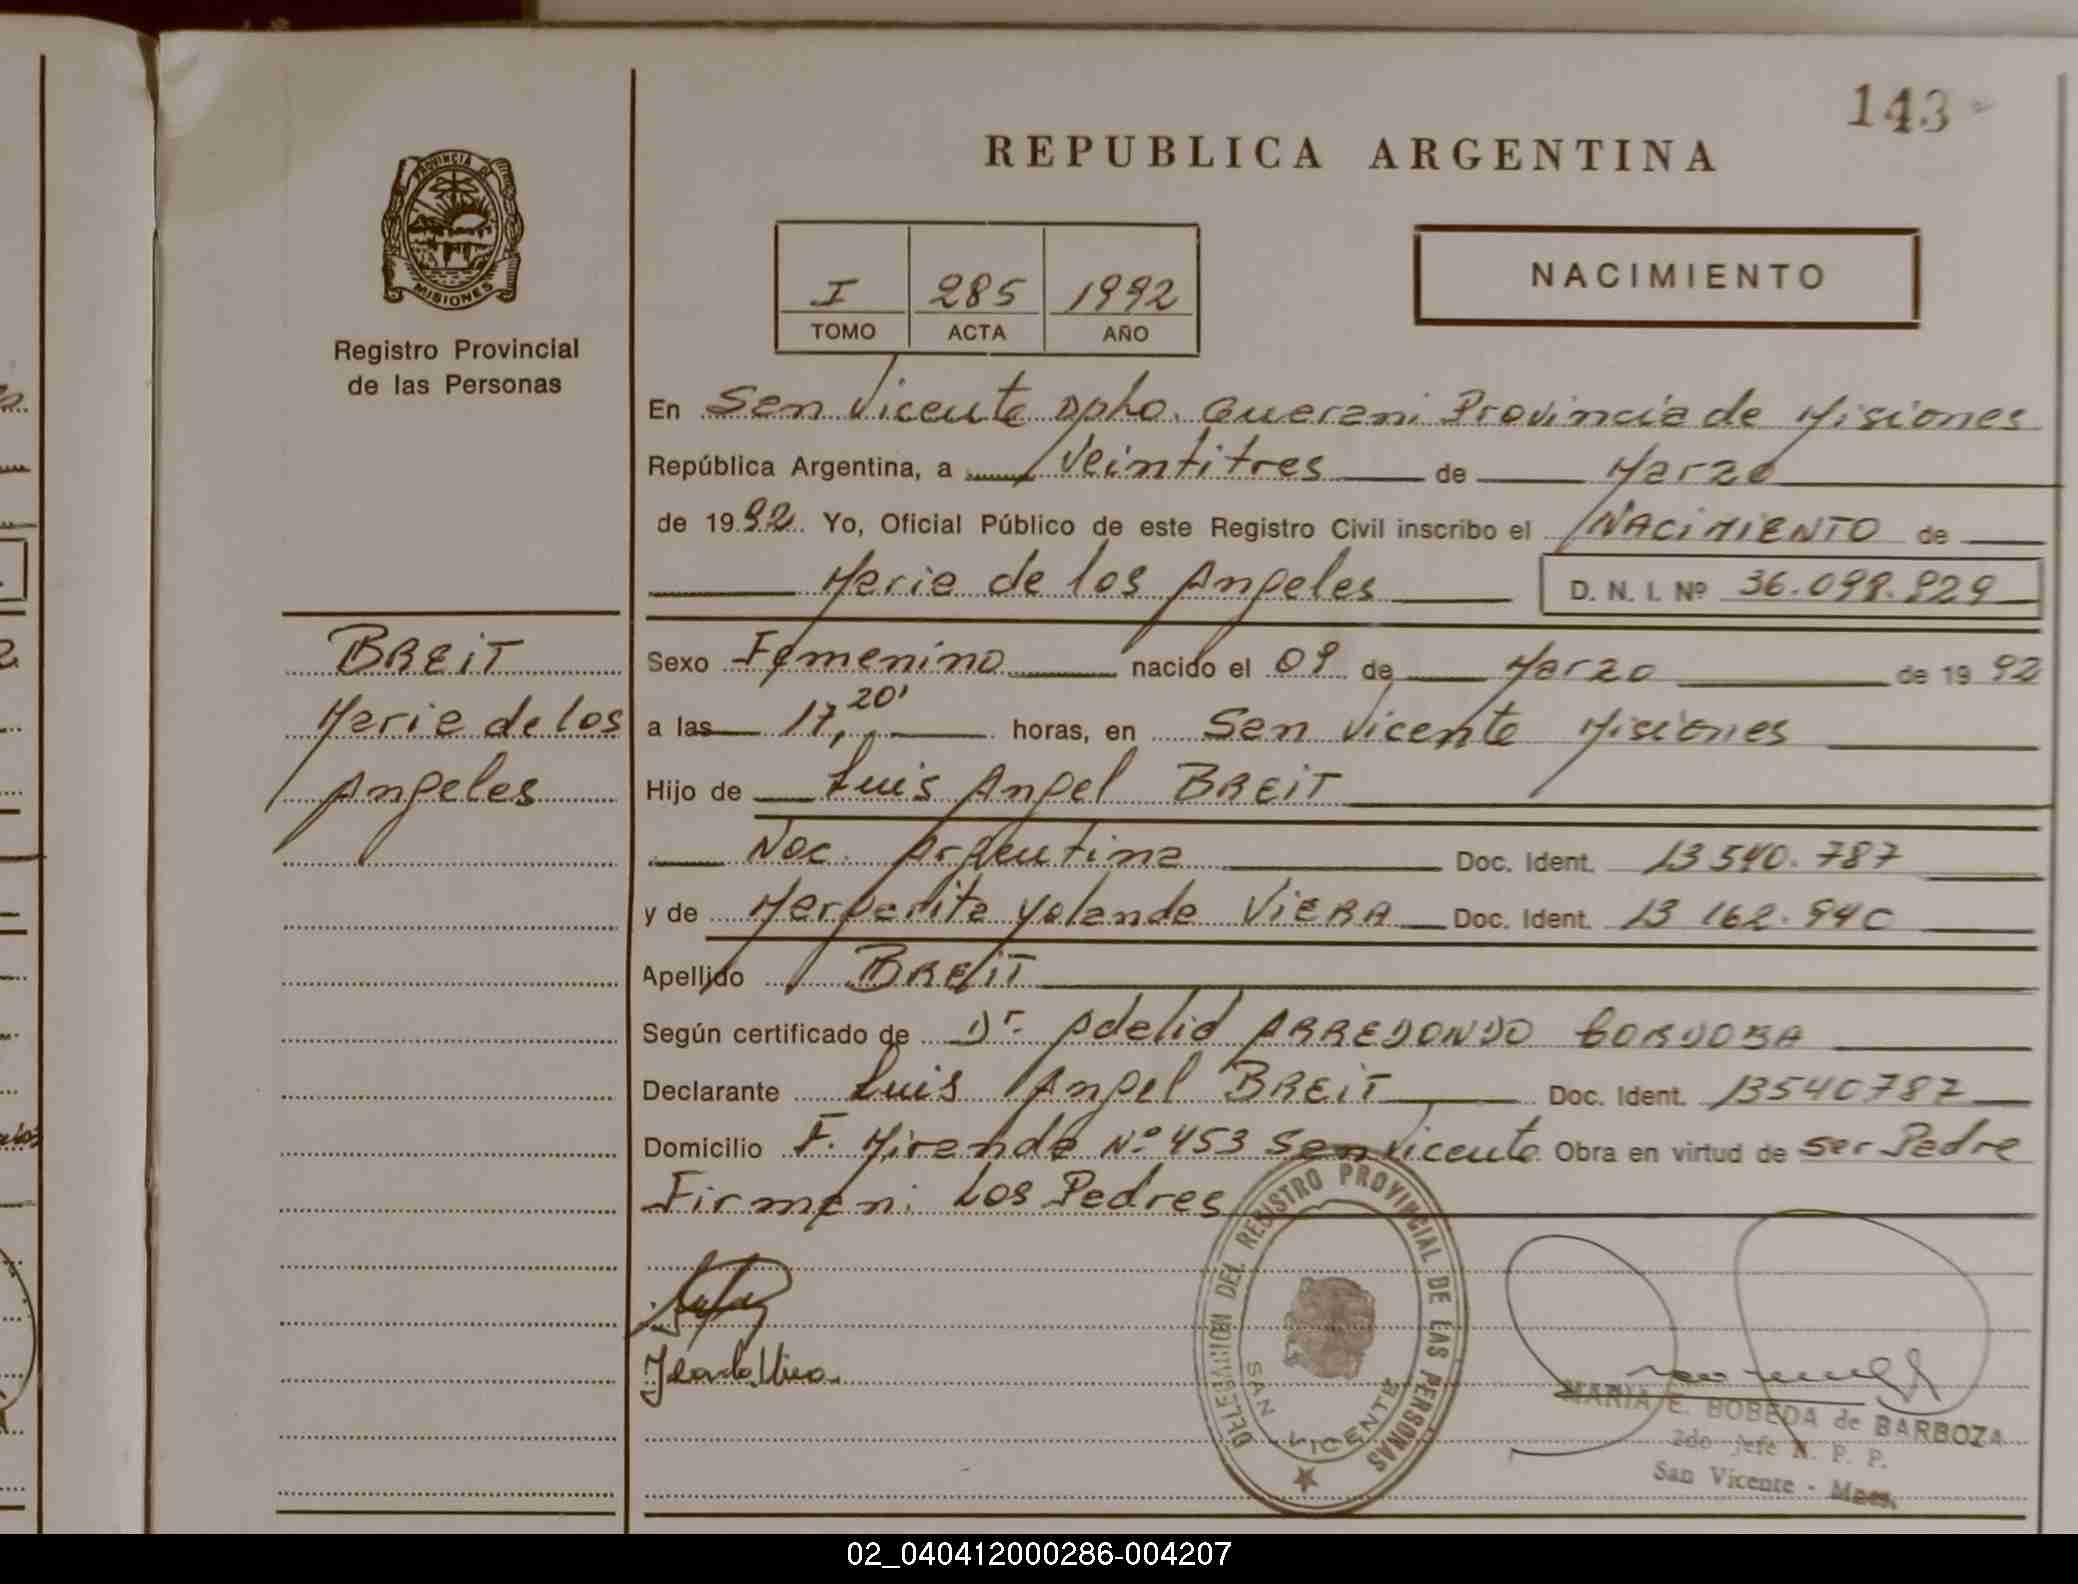 143
REPUBLICA ARGENTINA
PROVINCIA DE
MISIONES
Registro Provincial
de las Personas
I 285 1992
TOMO ACTA AÑO
NACIMIENTO
En San Vicente Dpto. Guarani Provincia de Misiones
República Argentina, a Veintitres de Marzo
de 1992 Yo, Oficial Público de este Registro Civil inscribo el NACIMIENTO de
Maria de los Angeles D. N. I. Nº 36.098.929
BREIT
Maria de los
Angeles
Sexo Femenino nacido el 09 de Marzo de 1992
a las 17,20' horas, en San Vicente Misiones
Hijo de Luis Angel BREIT
Nac. Argentina Doc. Ident. 13 540.787
y de Margarita Yolanda VIERA Doc. Ident. 13 162.940
Apellido BREIT
Según certificado de Dr. Adelid ARREDONDO CORDOBA
Declarante Luis Angel BREIT Doc. Ident. 13540787
Domicilio F. Miranda Nº 453 San Vicente Obra en virtud de ser Padre
Firman: Los Padres
DELEGACION DEL REGISTRO PROVINCIAL DE LAS PERSONAS
SAN VICENTE
MARIA E. BOBEDA de BARBOZA
2do jefe R. P. P.
San Vicente - Mnes.
02_040412000286-004207